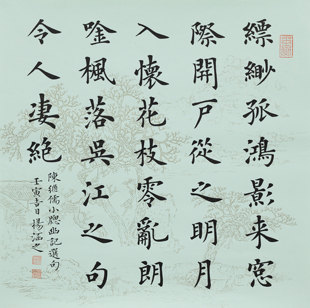 縹緲孤鴻影来窓
際開戸從之明月
入懷花枝零亂朗
唫楓落吳江之句
令人凄絶
陳繼儒小牕幽記選句
壬寅吉日楊涵之